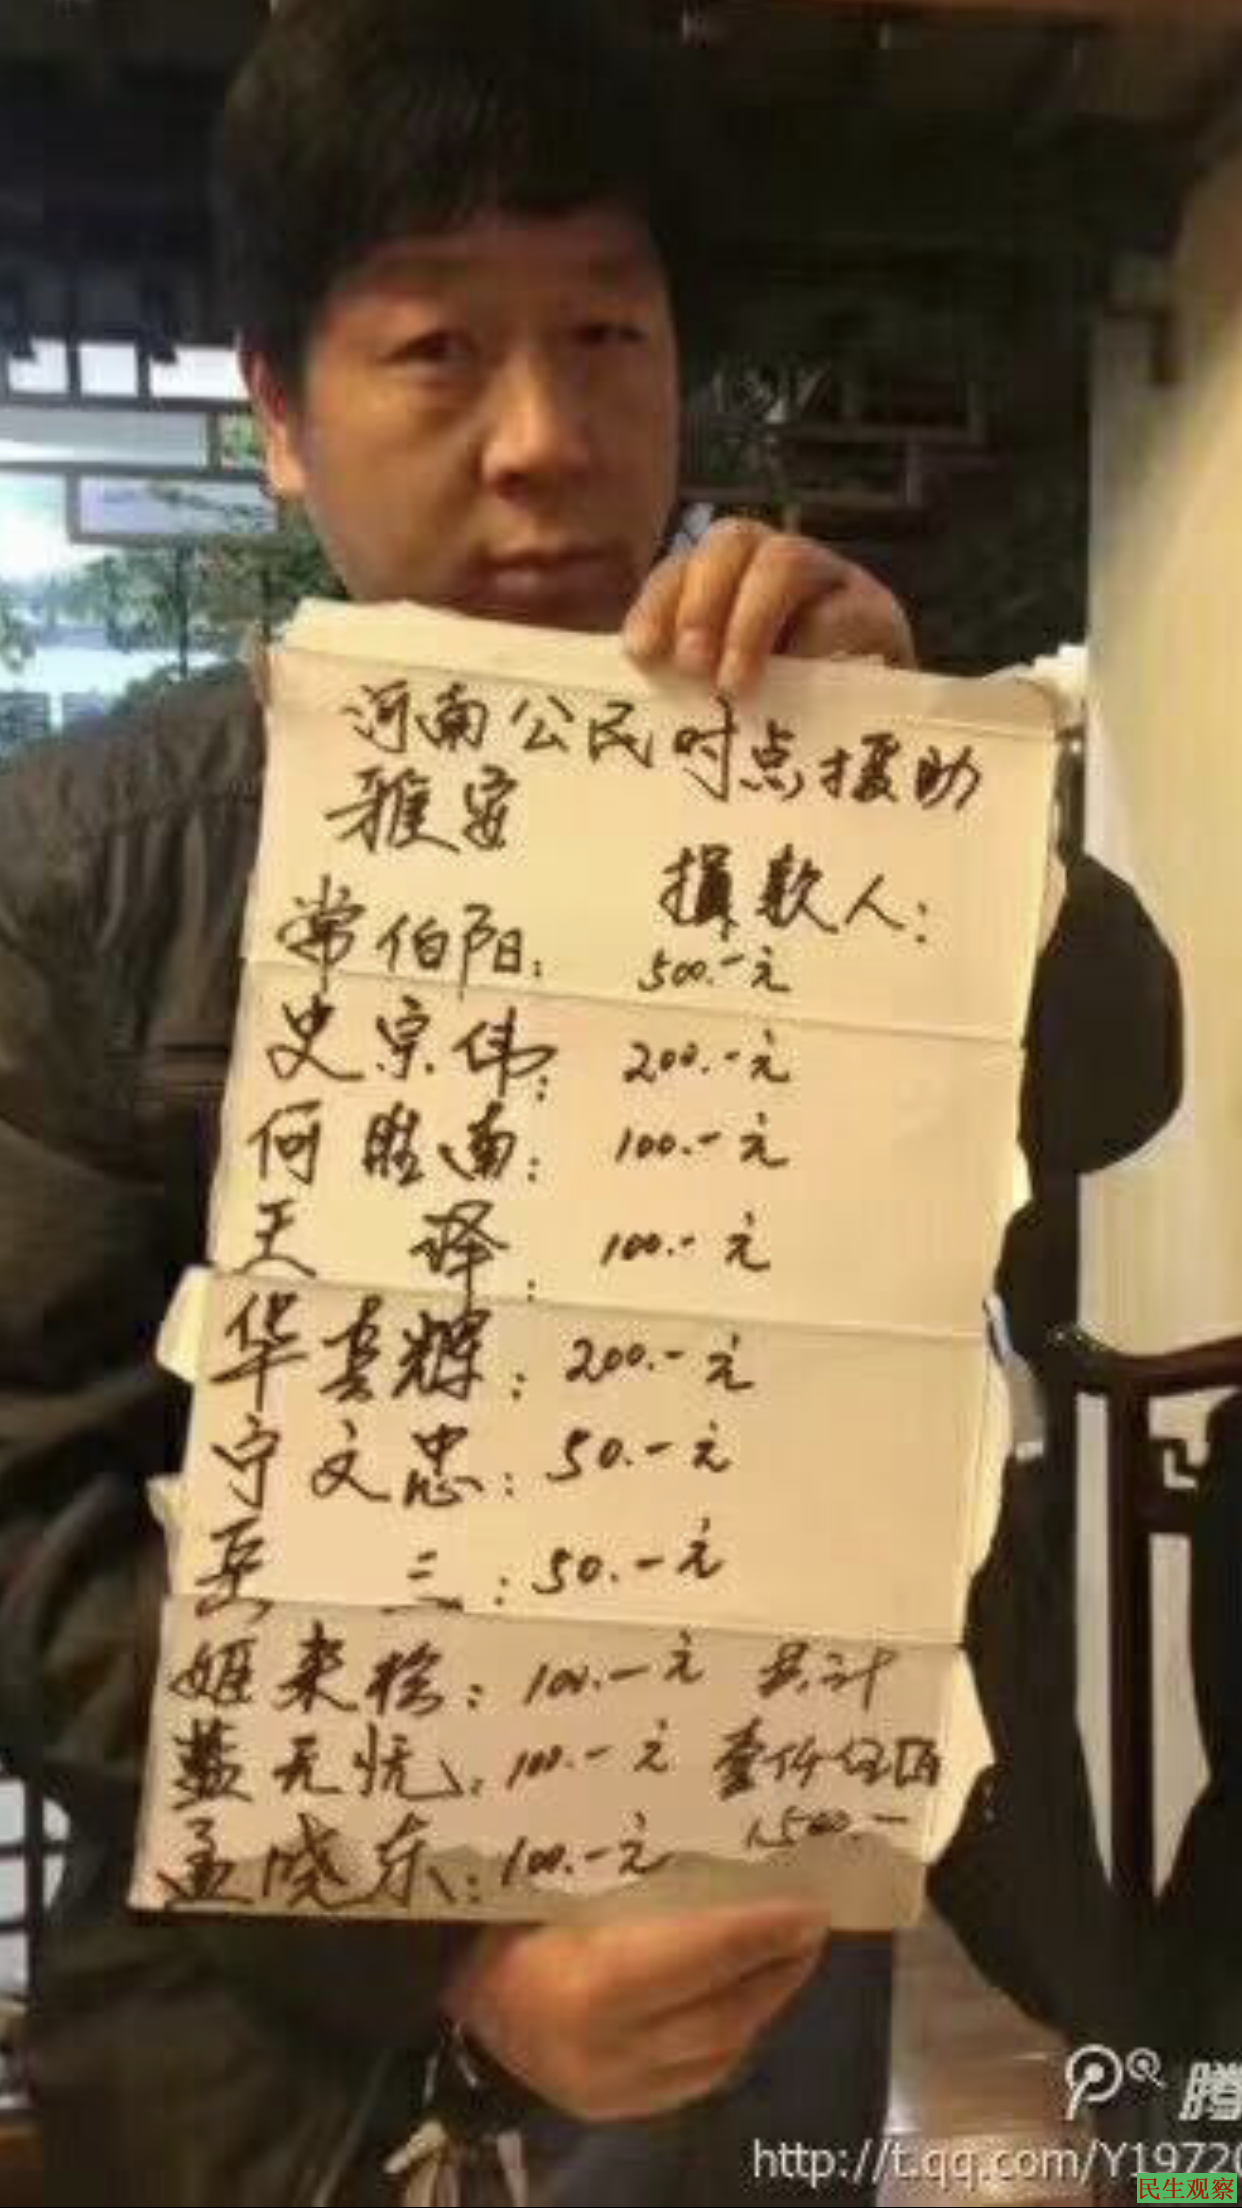 河南公民对点援助
雅安
捐款人：
常伯阳： 500.-元
史宗伟： 200.-元
何胜南： 100.-元
王 译： 100.-元
华春辉： 200.-元
宁文忠： 50.-元
三： 50.-元
姬来松： 100.-元 共计
蓝无忧： 100.-元 壹仟伍佰
孟晓东： 100.-元 1,500.-
腾
http://t.qq.com/Y19720
民生观察